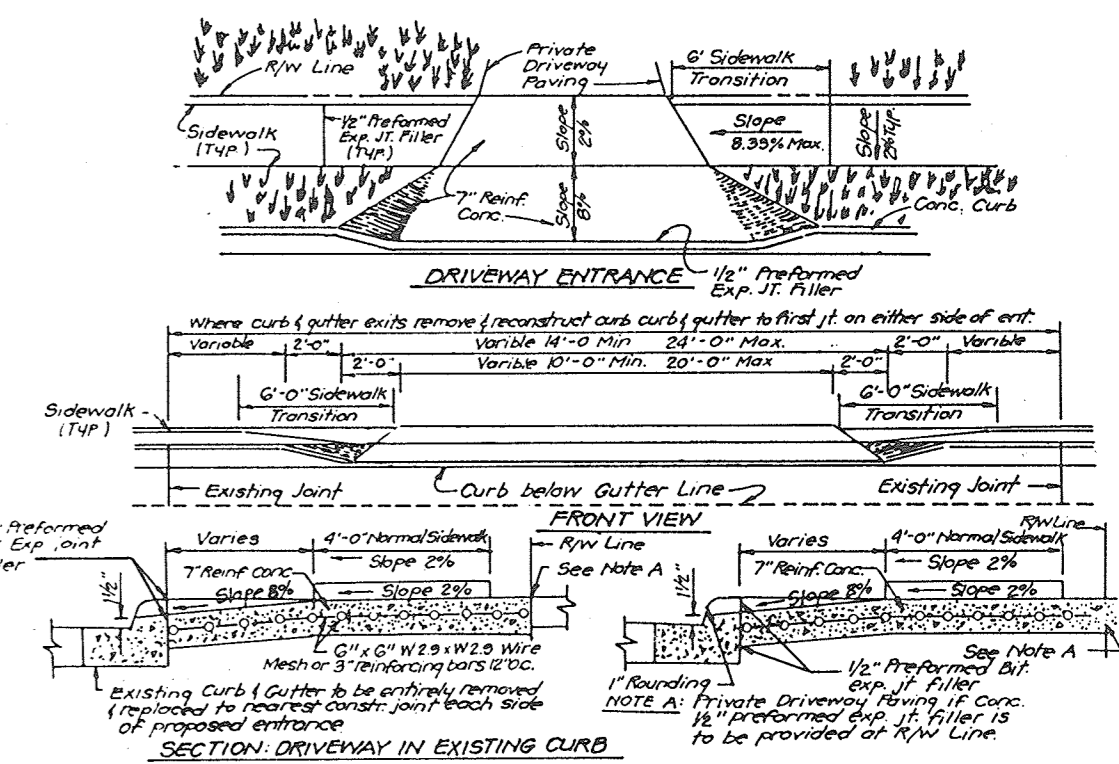 R/W Line
Private
Driveway
Paving
6' Sidewalk
Transition
Sidewalk
(Typ.)
1/2" Preformed
Exp. JT. Filler
(Typ.)
Slope
2%
Slope
8.33% Max.
Slope
2% Typ.
7" Reinf.
Conc.
Slope
8%
Conc. Curb
DRIVEWAY ENTRANCE
1/2" Preformed
Exp. JT. Filler
Where curb & gutter exits remove & reconstruct curb curb & gutter to first jt. on either side of ent.
Variable
2'-0"
Varible 14'-0 Min 24'-0" Max.
2'-0"
Varible
2'-0"
Varible 10'-0" Min. 20'-0" Max
2'-0"
6'-0" Sidewalk
Transition
6'-0" Sidewalk
Transition
Sidewalk
(TYP)
Existing Joint
Curb below Gutter Line
Existing Joint
FRONT VIEW
Preformed
Exp Joint
ler
Varies
4'-0" Normal Sidewalk
R/W Line
Slope 2%
See Note A
7" Reinf. Conc
Slope 8%
Slope 2%
1 1/2"
6" x 6" W2.9 x W2.9 Wire
Mesh or 3" reinforcing bars 12" O.C.
Existing Curb & Gutter to be entirely removed
& replaced to nearest constr. joint each side
of proposed entrance
SECTION: DRIVEWAY IN EXISTING CURB
R/W Line
Varies
4'-0" Normal Sidewalk
Slope 2%
7" Reinf. Conc.
Slope 8%
Slope 2%
1 1/2"
See Note A
1" Rounding
1/2" Preformed Bit.
exp. jt filler
NOTE A: Private Driveway Paving if Conc.
1/2" preformed exp. jt. filler is
to be provided at R/W Line.